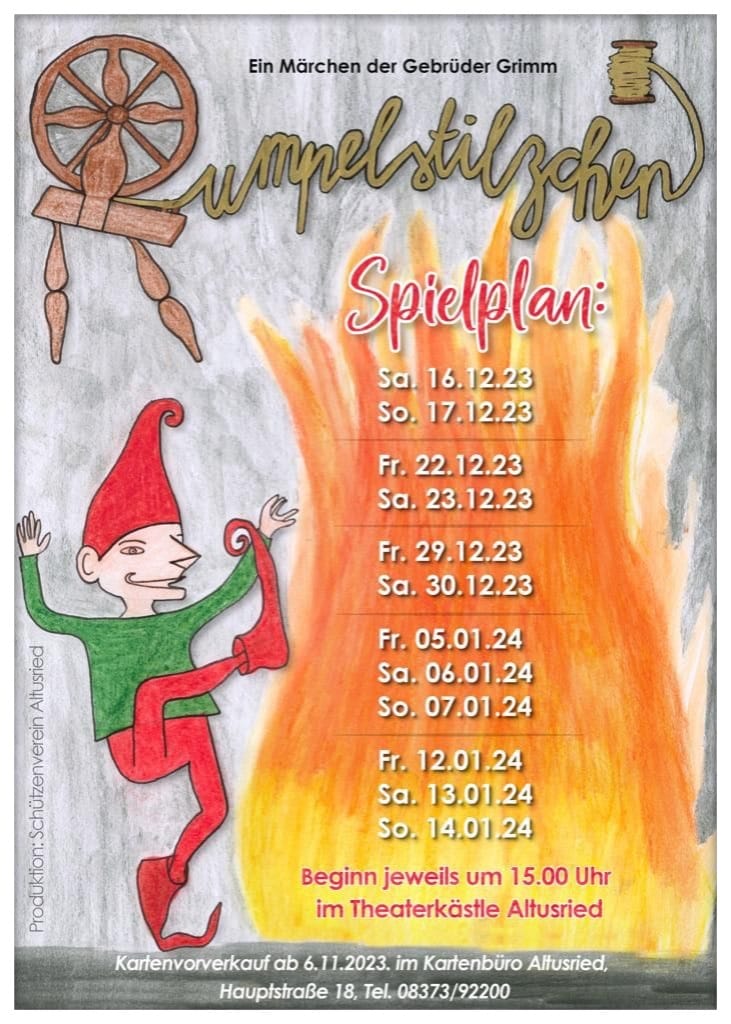 Ein Märchen der Gebrüder Grimm
umpelstilzchen
Spielplan:
Sa. 16.12.23
So. 17.12.23
Fr. 22.12.23
Sa. 23.12.23
Fr. 29.12.23
Sa. 30.12.23
Fr. 05.01.24
Sa. 06.01.24
So. 07.01.24
Fr. 12.01.24
Sa. 13.01.24
So. 14.01.24
Beginn jeweils um 15.00 Uhr
im Theaterkästle Altusried
Produktion: Schützenverein Altusried
Kartenvorverkauf ab 6.11.2023. im Kartenbüro Altusried,
Hauptstraße 18, Tel. 08373/92200